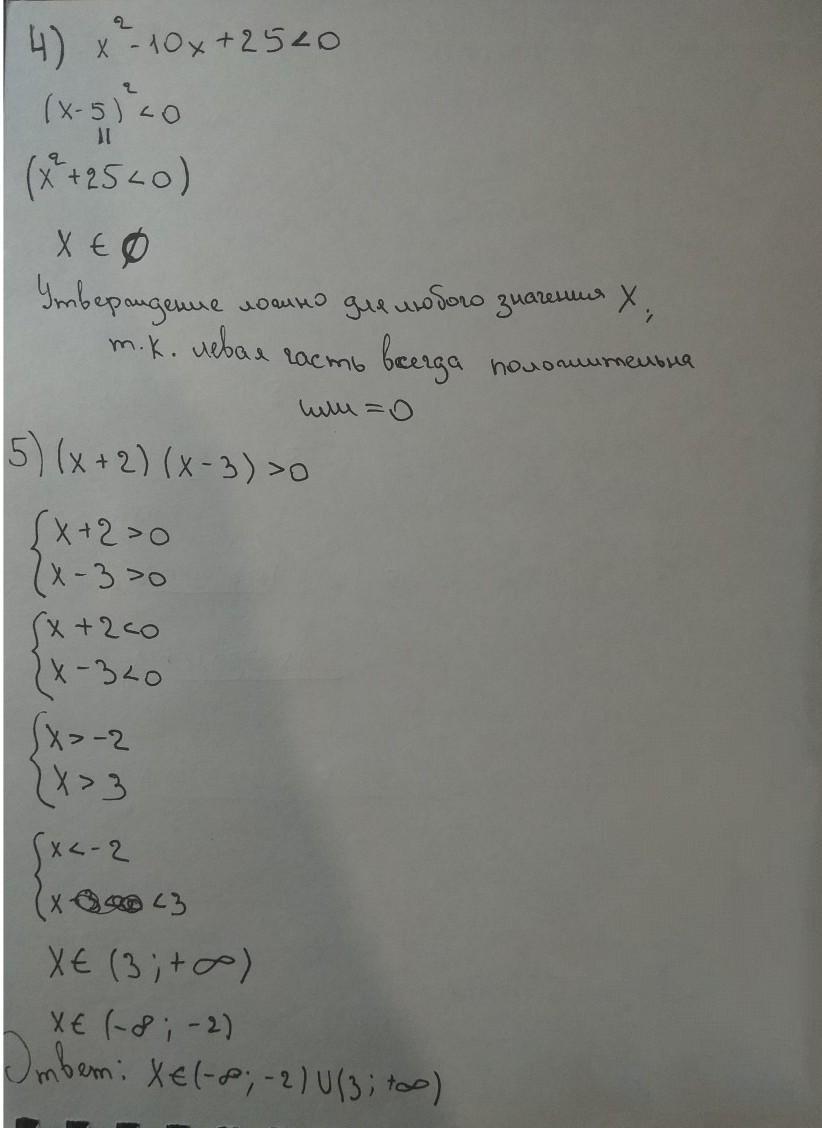 4) x²-10x+25<0
(x-5)²<0
||
(x²+25<0)
x ∈ ∅
Утверждение ложно для любого значения x,
т.к. левая часть всегда положительна
или =0
5) (x+2)(x-3)>0
{x+2>0
{x-3>0
{x+2<0
{x-3<0
{x>-2
{x>3
{x<-2
{x<3
x∈ (3;+∞)
x∈ (-∞; -2)
Ответ: x∈(-∞;-2)∪(3;+∞)